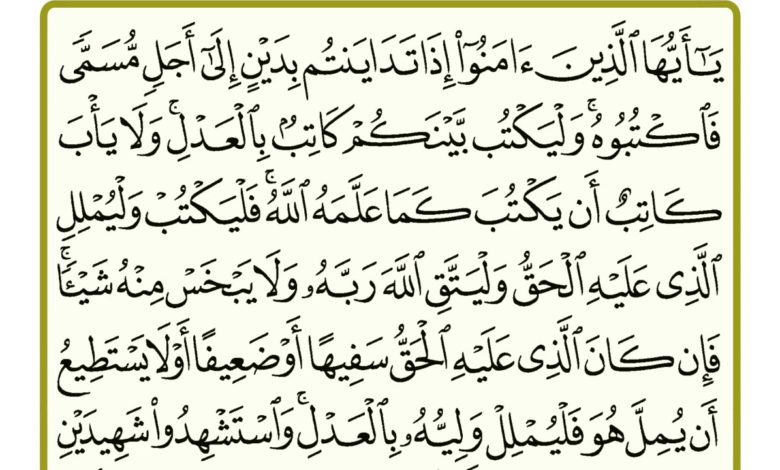 يَـٰٓأَيُّهَا ٱلَّذِينَ ءَامَنُوٓا۟ إِذَا تَدَايَنتُم بِدَيْنٍ إِلَىٰٓ أَجَلٍ مُّسَمًّى
فَٱكْتُبُوهُ ۚ وَلْيَكْتُب بَّيْنَكُمْ كَاتِبٌۢ بِٱلْعَدْلِ ۚ وَلَا يَأْبَ
كَاتِبٌ أَن يَكْتُبَ كَمَا عَلَّمَهُ ٱللَّهُ ۚ فَلْيَكْتُبْ وَلْيُمْلِلِ
ٱلَّذِى عَلَيْهِ ٱلْحَقُّ وَلْيَتَّقِ ٱللَّهَ رَبَّهُۥ وَلَا يَبْخَسْ مِنْهُ شَيْـًٔا ۚ
فَإِن كَانَ ٱلَّذِى عَلَيْهِ ٱلْحَقُّ سَفِيهًا أَوْ ضَعِيفًا أَوْ لَا يَسْتَطِيعُ
أَن يُمِلَّ هُوَ فَلْيُمْلِلْ وَلِيُّهُۥ بِٱلْعَدْلِ ۚ وَٱسْتَشْهِدُوا۟ شَهِيدَيْنِ